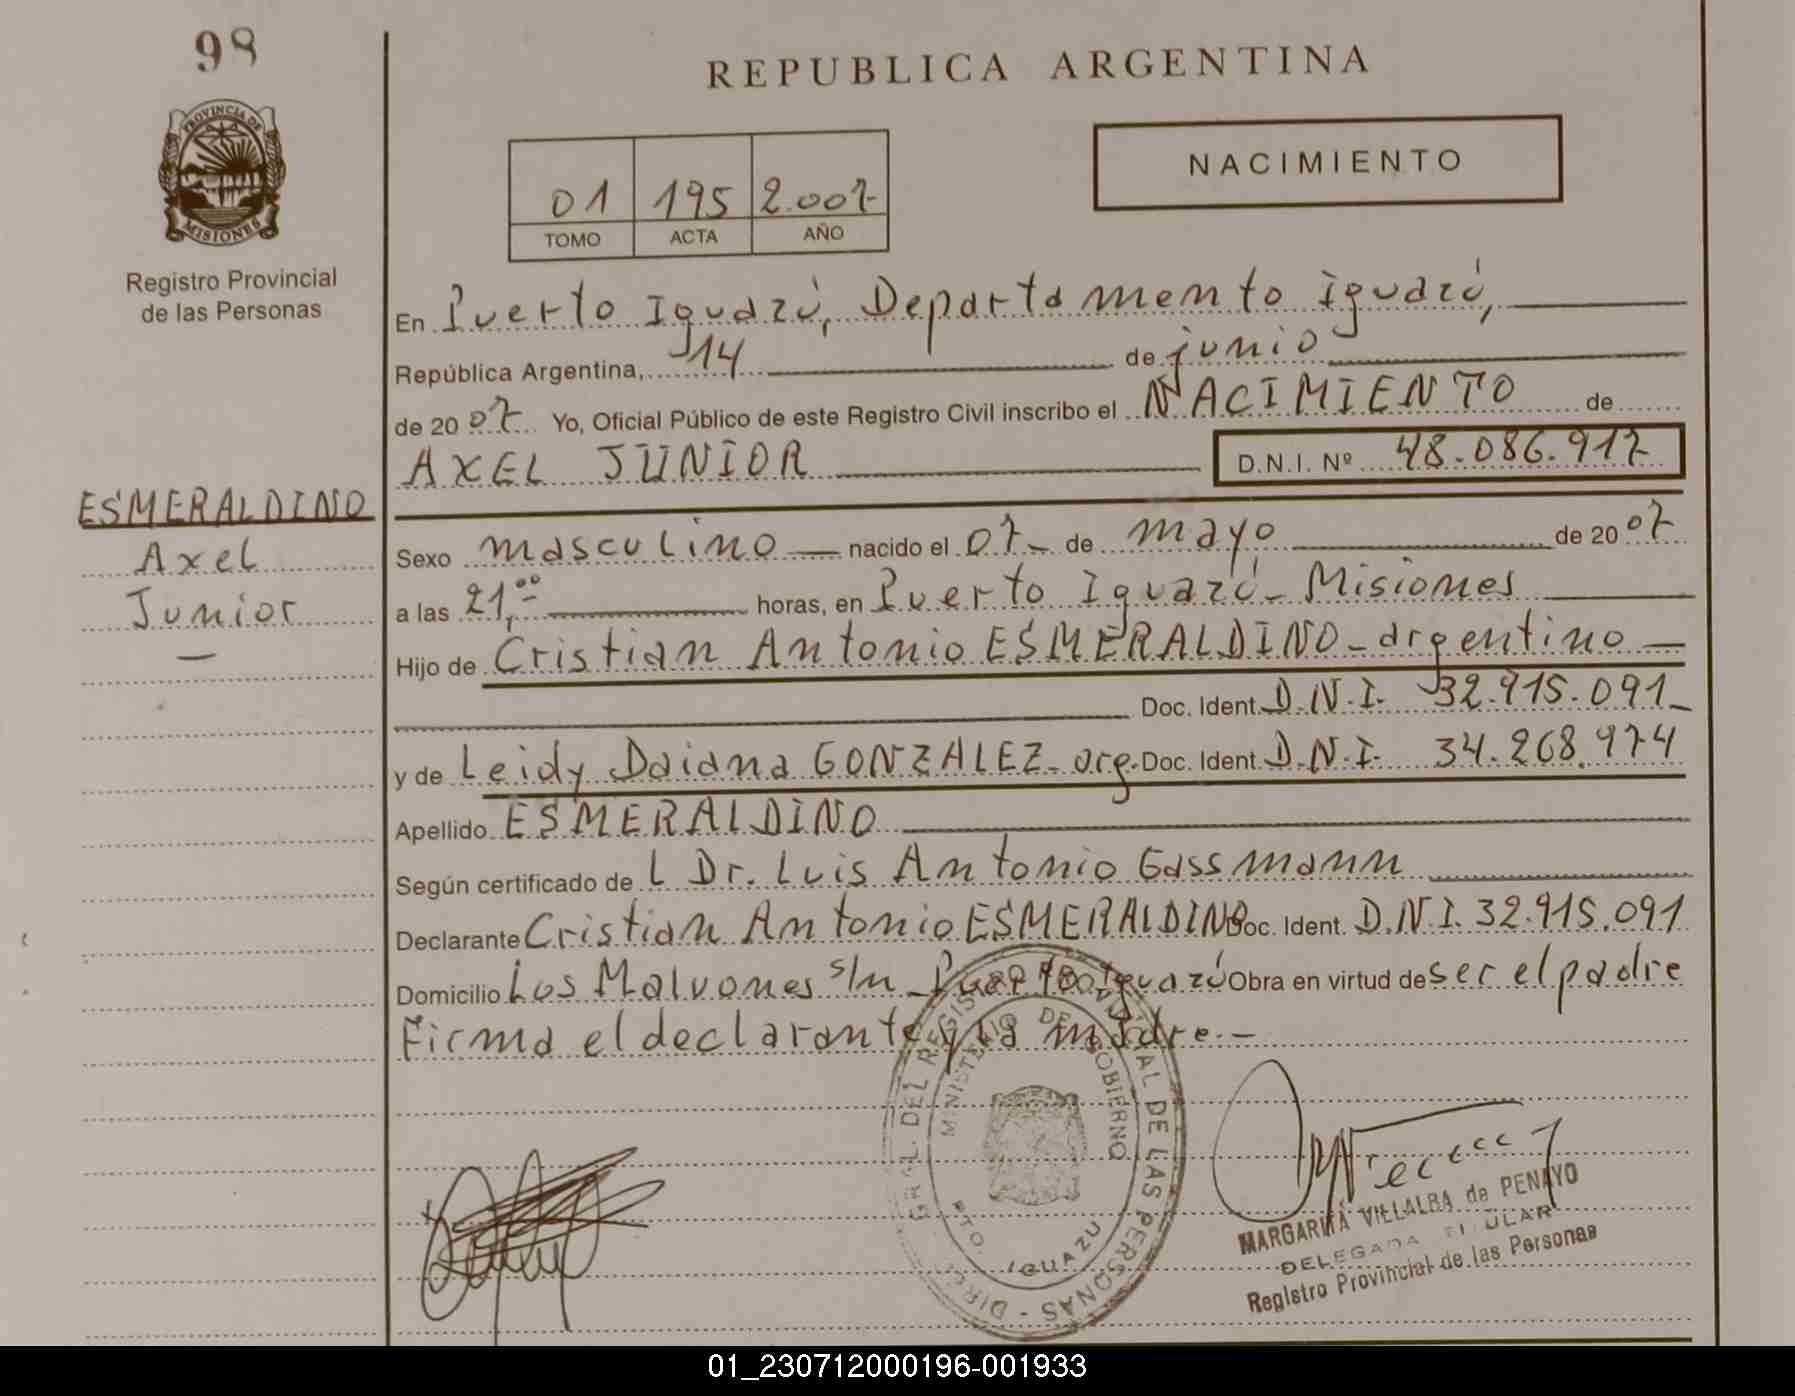 98
REPUBLICA ARGENTINA
PROVINCIA DE
MISIONES
Registro Provincial
de las Personas
NACIMIENTO
01 195 2.007-
TOMO ACTA AÑO
En Puerto Iguazú, Departamento Iguazú,
República Argentina, 14 de junio
de 2007 Yo, Oficial Público de este Registro Civil inscribo el NACIMIENTO de
AXEL JUNIOR D.N.I. Nº 48.086.917
ESMERALDINO
Axel
Junior
Sexo masculino nacido el 07 de mayo de 2007
a las 21,00 horas, en Puerto Iguazú - Misiones
Hijo de Cristian Antonio ESMERALDINO - argentino
Doc. Ident. D.N.I. 32.915.091
y de Leidy Daiana GONZALEZ - arg. Doc. Ident. D.N.I. 34.268.974
Apellido ESMERALDINO
Según certificado de L Dr. Luis Antonio Gassmann
Declarante Cristian Antonio ESMERALDINO Doc. Ident. D.N.I. 32.915.091
Domicilio Los Malvones s/n - Puerto Iguazú Obra en virtud de ser el padre
Firma el declarante y la madre.-
DIR. GRAL. DEL REGISTRO PROVINCIAL DE LAS PERSONAS -
MINISTERIO DE GOBIERNO
PTO. IGUAZU
MARGARITA VILLALBA de PENAYO
DELEGADA TITULAR
Registro Provincial de las Personas
01_230712000196-001933